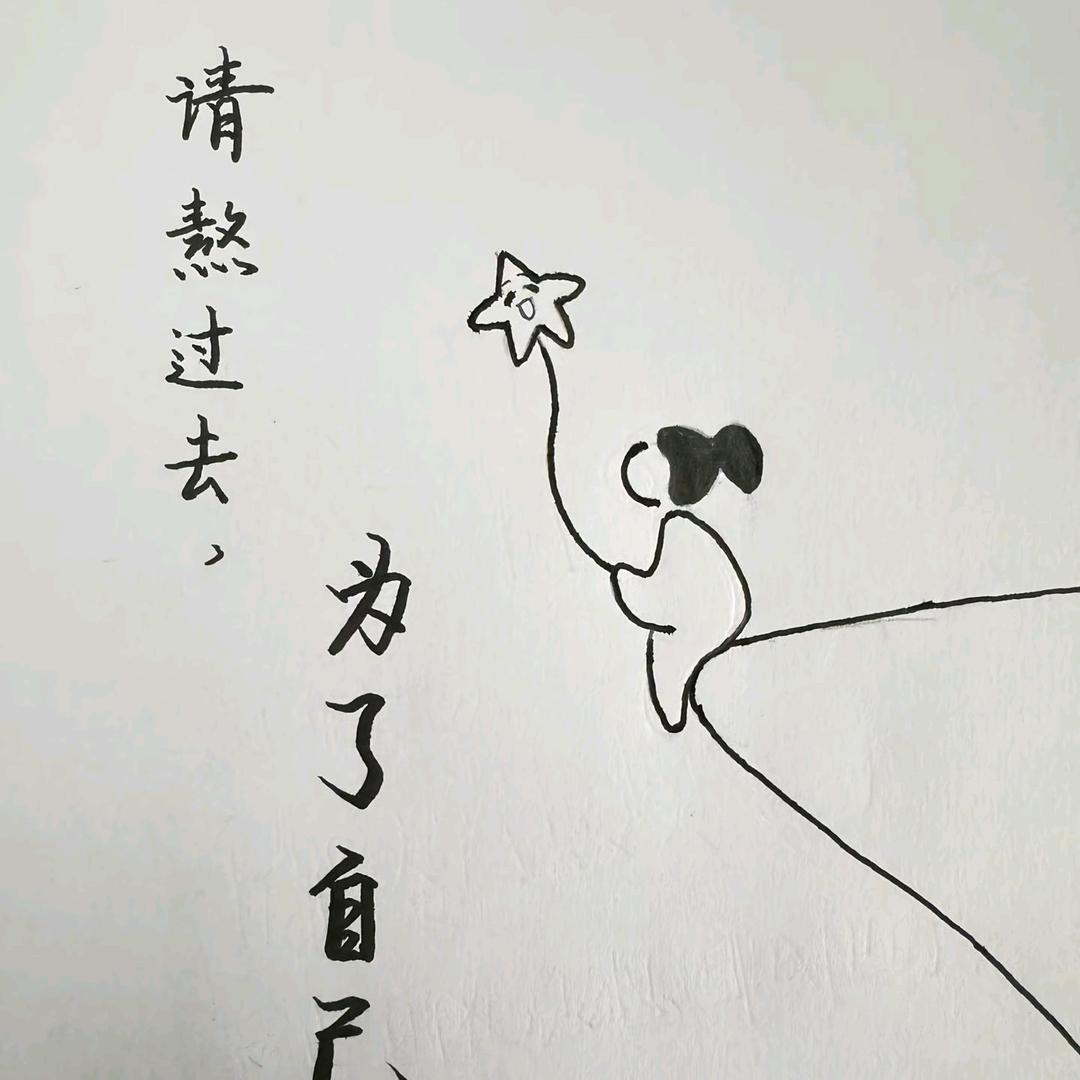 请熬过去，
为了自